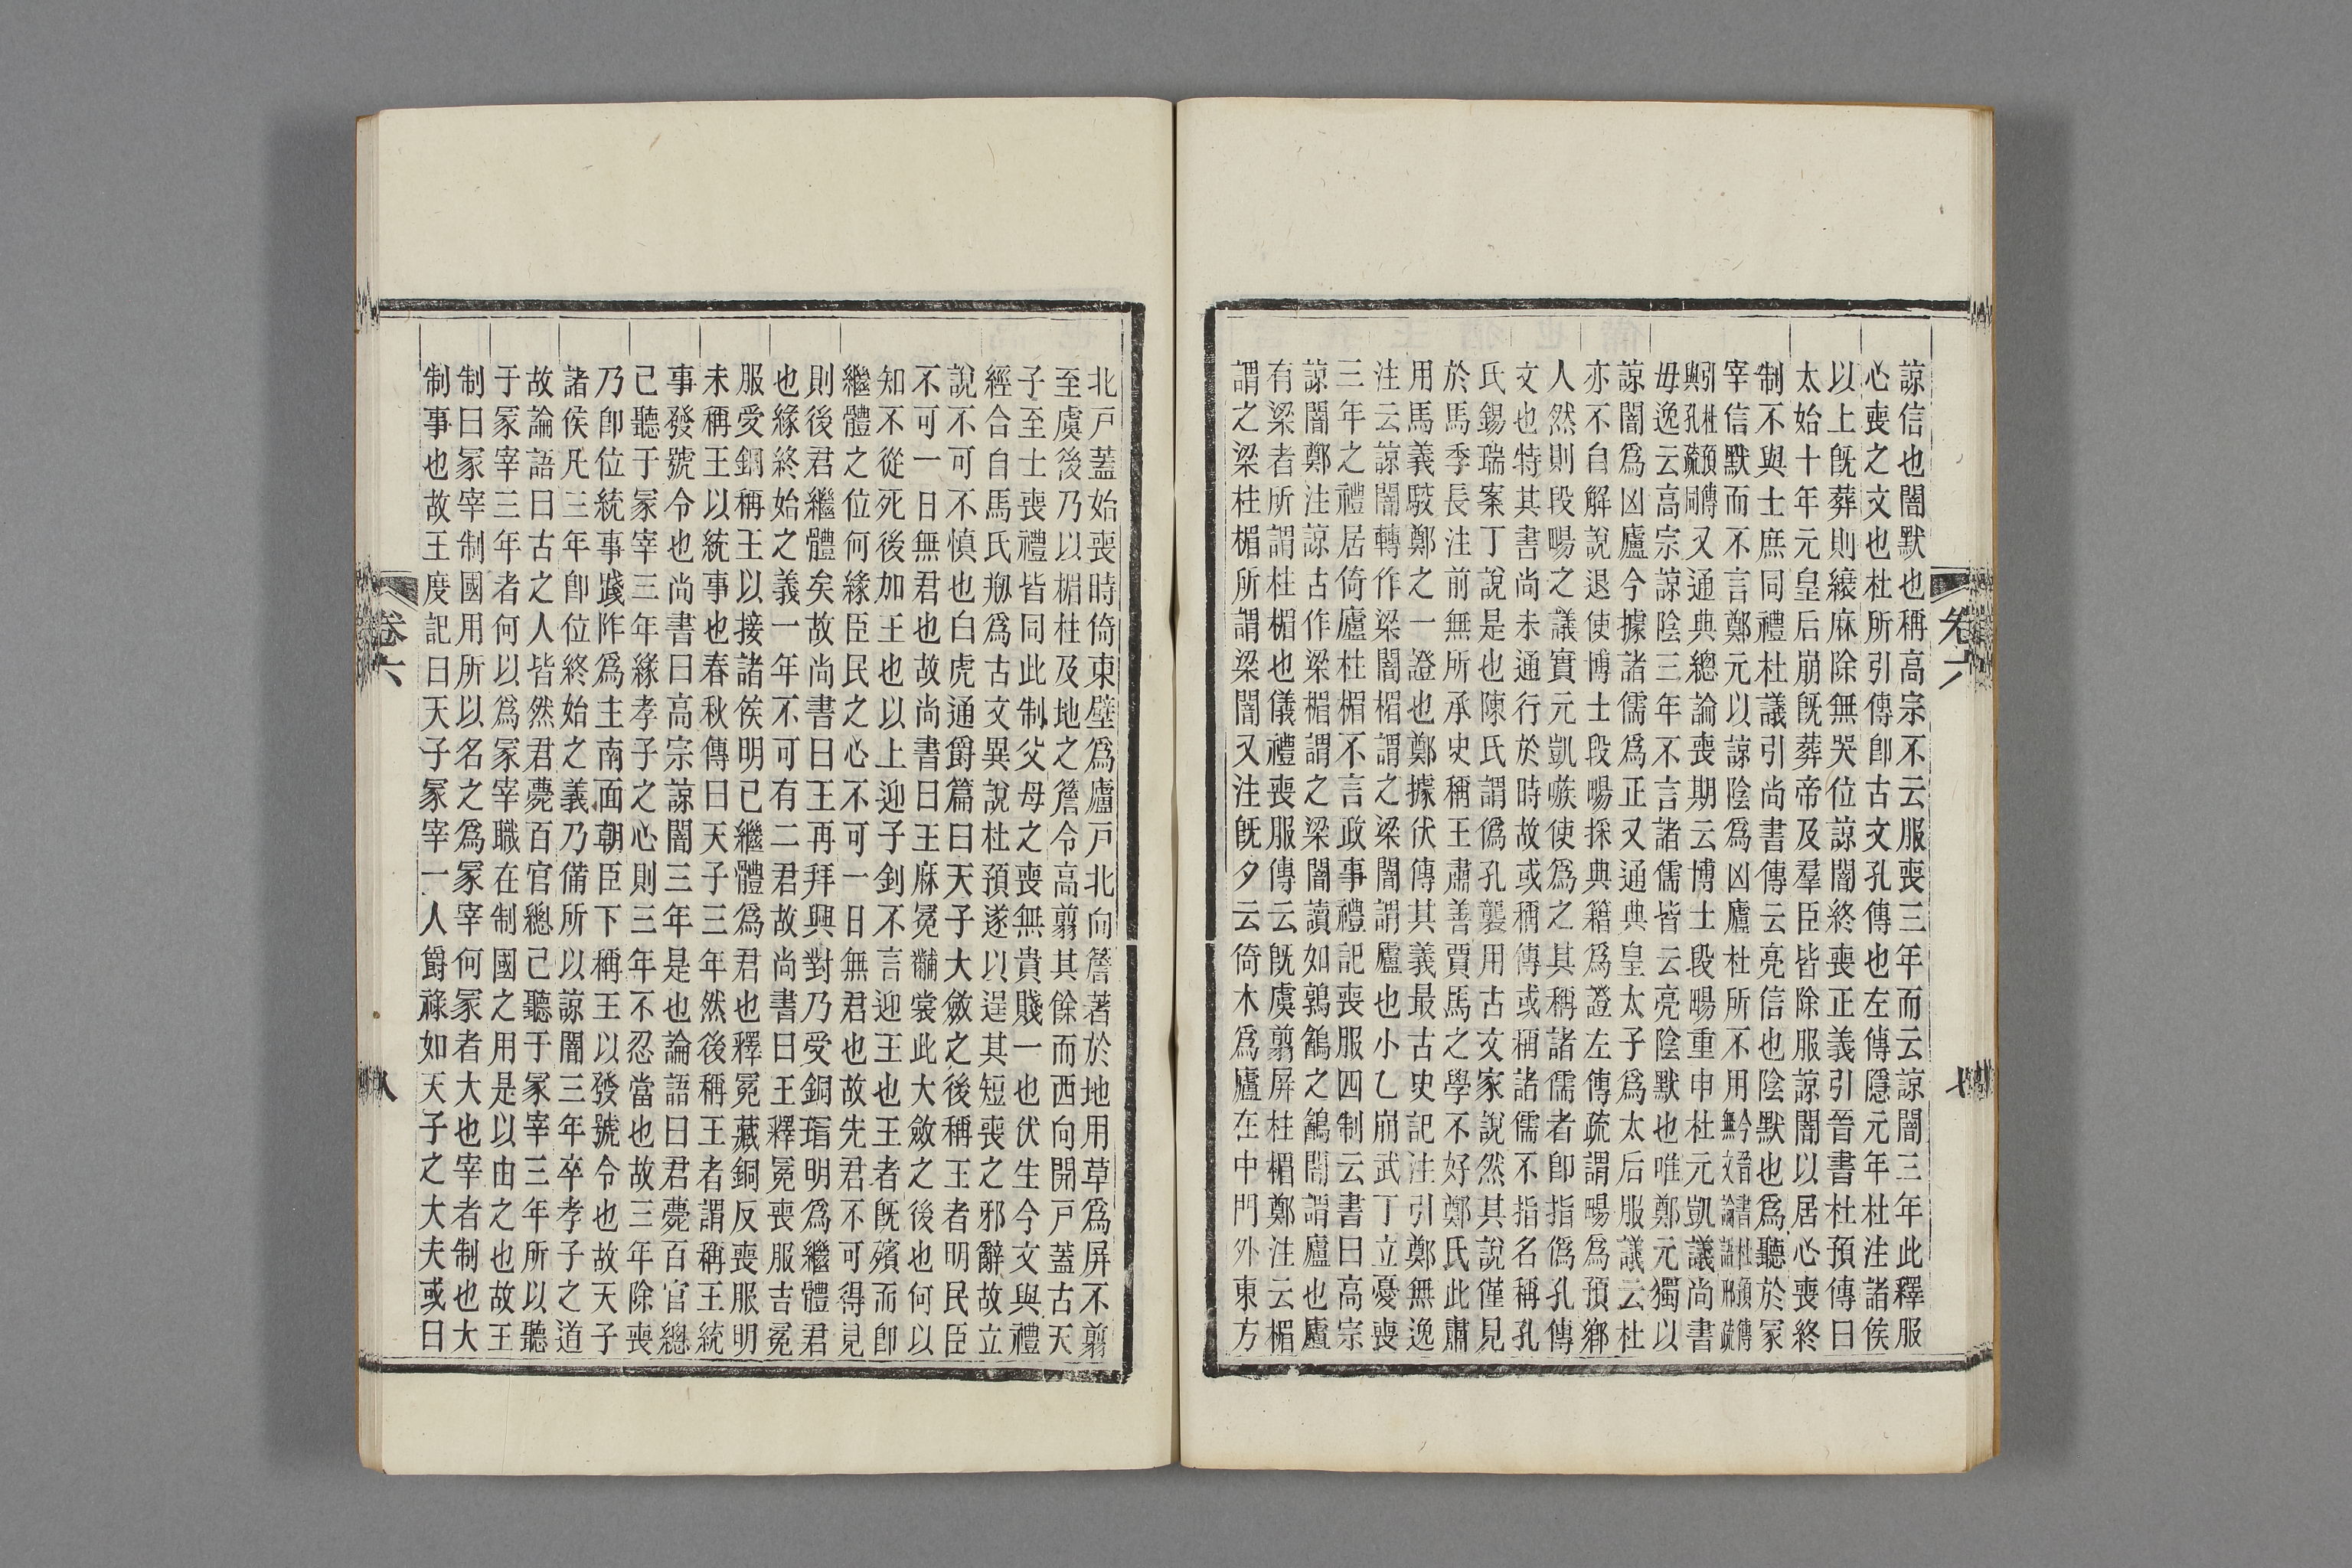 諒信也闇默也稱高宗不云服喪三年而云諒闇三年此釋服
心喪之文也杜所引傳卽古文孔傳也左傳隱元年杜注諸侯
以上旣葬則縗麻除無哭位諒闇終喪正義引晉書杜預傳曰
太始十年元皇后崩旣葬帝及羣臣皆除服諒闇以居心喪終
制不與士庶同禮杜議引尚書傳云亮信也陰默也爲聽於冢
宰信默而不言鄭元以諒陰爲凶廬杜所不用今晉書杜預傳無文論語邢疏
引杜預傳與孔疏同又通典總論喪期云博士段暢重申杜元凱議尚書
毋逸云高宗諒陰三年不言諸儒皆云亮陰默也唯鄭元獨以
諒闇爲凶廬今據諸儒爲正又通典皇太子爲太后服議云杜
亦不自解說退使博士段暢採典籍爲證左傳疏謂暢爲預鄉
人然則段暢之議實元凱嗾使爲之其稱諸儒者卽指僞孔傳
文也特其書尚未通行於時故或稱傳或稱諸儒不指名稱孔
氏錫瑞案丁說是也陳氏謂僞孔襲用古文家說然其說僅見
於馬季長注前無所承史稱王肅善賈馬之學不好鄭氏此肅
用馬義駮鄭之一證也鄭據伏傳其義最古史記注引鄭無逸
注云諒闇轉作梁闇楣謂之梁闇謂廬也小乙崩武丁立憂喪
三年之禮居倚廬柱楣不言政事禮記喪服四制云書曰高宗
諒闇鄭注諒古作梁楣謂之梁闇讀如鶉鷂之鷂闇謂廬也廬
有梁者所謂柱楣也儀禮喪服傳云旣虞翦屏柱楣鄭注云楣
謂之梁柱楣所謂梁闇又注旣夕云倚木爲廬在中門外東方
卷六
七
北戸蓋始喪時倚東壁爲廬戸北向簷著於地用草爲屏不翦
至虞後乃以楣柱及地之簷令高翦其餘而西向開戸蓋古天
子至士喪禮皆同此制父母之喪無貴賤一也伏生今文與禮
經合自馬氏剏爲古文異說杜預遂以逞其短喪之邪辭故立
說不可不慎也白虎通爵篇曰天子大斂之後稱王者明民臣
不可一日無君也故尚書曰王麻冕黼裳此大斂之後也何以
知不從死後加王也以上迎子釗不言迎王也王者旣殯而卽
繼體之位何緣臣民之心不可一日無君也故先君不可得見
則後君繼體矣故尚書曰王再拜興對乃受銅瑁明爲繼體君
也緣終始之義一年不可有二君故尚書曰王釋冕喪服吉冕
服受銅稱王以接諸侯明已繼體爲君也釋冕藏銅反喪服明
未稱王以統事也春秋傳曰天子三年然後稱王者謂稱王統
事發號令也尚書曰高宗諒闇三年是也論語曰君薨百官總
己聽于冢宰三年緣孝子之心則三年不忍當也故三年除喪
乃卽位統事踐阼爲主南面朝臣下稱王以發號令也故天子
諸侯凡三年卽位終始之義乃備所以諒闇三年卒孝子之道
故論語曰古之人皆然君薨百官總己聽于冢宰三年所以聽
于冢宰三年者何以爲冢宰職在制國之用是以由之也故王
制曰冢宰制國用所以名之爲冢宰何冢者大也宰者制也大
制事也故王度記曰天子冢宰一人爵祿如天子之大夫或曰
卷六
八